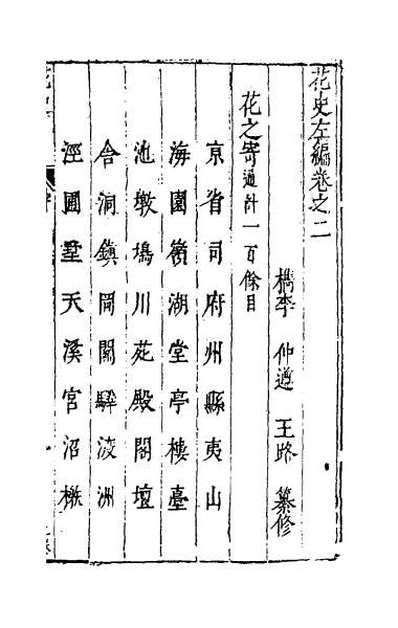 花史左編卷之二
檇李 仲遵 王路 纂修
花之寄通計一百餘目
京省司府州縣夷山
海園嶺湖堂亭樓臺
池墩塢川苑殿閣壇
舍洞鎮岡關驛波洲
涇圃墅天溪宮沼